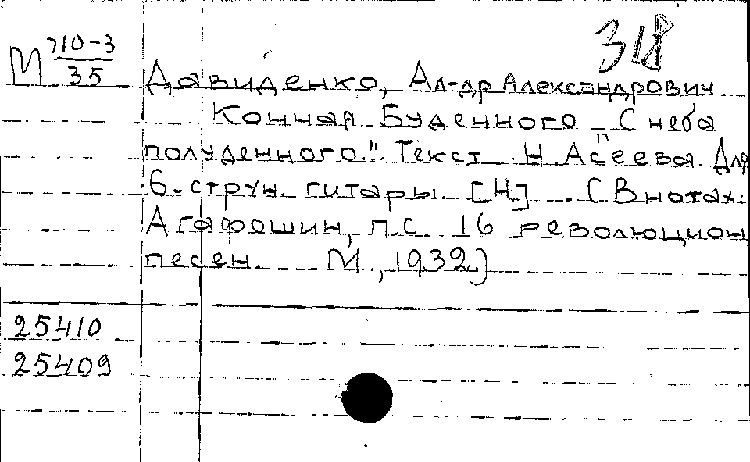 318
М 710-3
35
Давиденко, Ал-др Александрович
Конная Буденного „С неба
полуденного". Текст Н. Асеева. Для
6-струн. гитары. [Н] (В нотах:
Агафошин, П.С. 16 революцион
песен М., 1932)
25410
25409